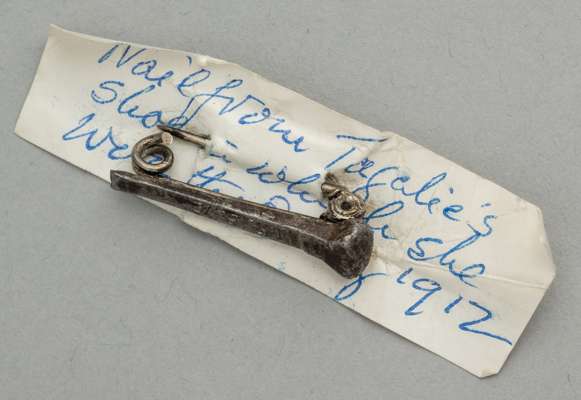 Nail from Tagalie's
shoe in which she
Won the
1912